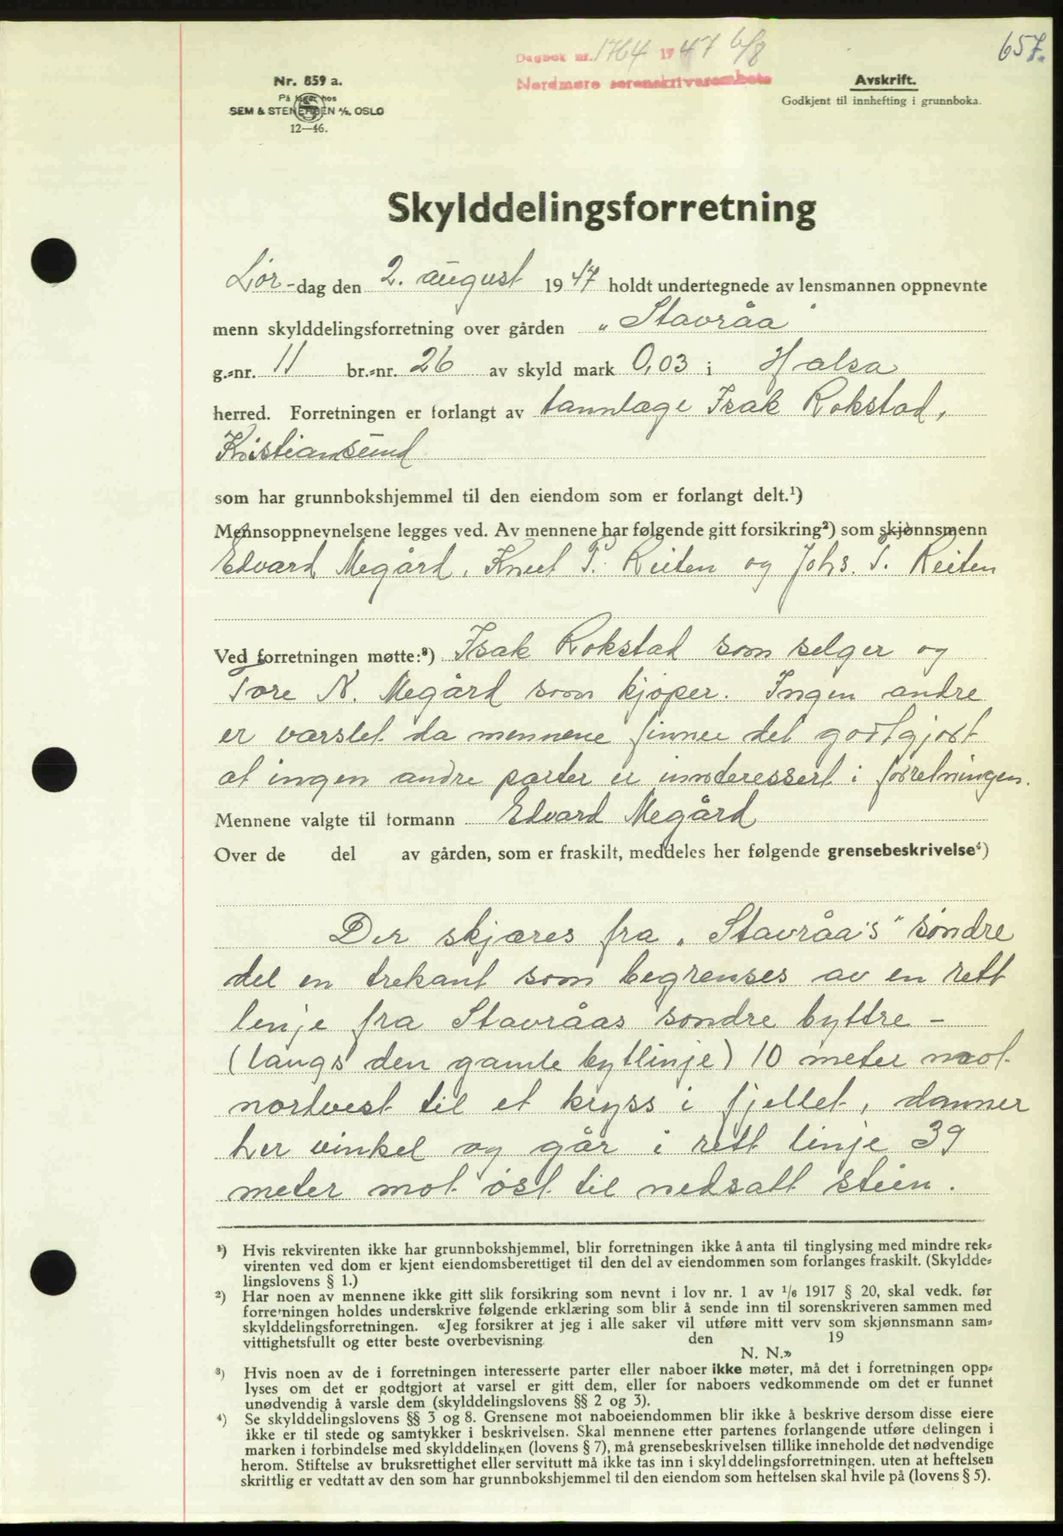 657.
Dagbok nr. 1764 1947 6/8
Nordmøre sorenskriverembete
Nr. 859 a.
På lager hos
SEM & STENERSEN A/S. OSLO
12—46.
Avskrift.
Godkjent til innhefting i grunnboka.
Skylddelingsforretning
Lør-dag den 2. august 1947 holdt undertegnede av lensmannen oppnevnte
menn skylddelingsforretning over gården „Stavråa"
g.=nr. 11 br.=nr. 26 av skyld mark 0,03 i Halsa
herred. Forretningen er forlangt av tannlæge Isak Rokstad,
Kristiansund
som har grunnbokshjemmel til den eiendom som er forlangt delt.¹)
Mennsoppnevnelsene legges ved. Av mennene har følgende gitt forsikring²) som skjønnsmenn
Edvard Megård, Knut P. Reiten og Johs. T. Reiten
Ved forretningen møtte:³) Isak Rokstad som selger og
Tore N. Megård som kjøper. Ingen andre
er varslet da mennene finner det godtgjort
at ingen andre parter er innteressert i forretningen.
Mennene valgte til formann Edvard Megård
Over de del av gården, som er fraskilt, meddeles her følgende grensebeskrivelse⁴)
Der skjæres fra „Stavråa's" søndre
del en trekant som begrenses av en rett
lenje fra Stavråas søndre byttre –
(langs den gamle bytlinje) 10 meter mot
nordvest til et kryss i fjellet, danner
her vinkel og går i rett linje 39
meter mot øst til nedsatt stein.
¹) Hvis rekvirenten ikke har grunnbokshjemmel, blir forretningen ikke å anta til tinglysing med mindre rek=
virenten ved dom er kjent eiendomsberettiget til den del av eiendommen som forlanges fraskilt. (Skyldde=
lingslovens § 1.)
²) Har noen av mennene ikke gitt slik forsikring som nevnt i lov nr. 1 av 1/6 1917 § 20, skal vedk. før
forretningen holdes underskrive følgende erklæring som blir å sende inn til sorenskriveren sammen med
skylddelingsforretningen. «Jeg forsikrer at jeg i alle saker vil utføre mitt verv som skjønnsmann sam=
vittighetsfullt og etter beste overbevisning. den 19
N. N.»
³) Hvis noen av de i forretningen interesserte parter eller naboer ikke møter, må det i forretningen opp=
lyses om det er godtgjort at varsel er gitt dem, eller for naboers vedkommende om det er funnet
unødvendig å varsle dem (skylddelingslovens §§ 2 og 3).
⁴) Se skylddelingslovens §§ 3 og 8. Grensene mot naboeiendommen blir ikke å beskrive dersom disse eiere
ikke er til stede og samtykker i beskrivelsen. Skal mennene etter partenes forlangende utføre delingen i
marken i forbindelse med skylddelingen (lovens § 7), må grensebeskrivelsen tillike inneholde det nødvendige
herom. Stiftelse av bruksrettighet eller servitutt må ikke tas inn i skylddelingsforretningen. uten at heftelsen
skriftlig er vedtatt av den som har grunnbokshjemmel til den eiendom som heftelsen skal hvile på (lovens § 5).